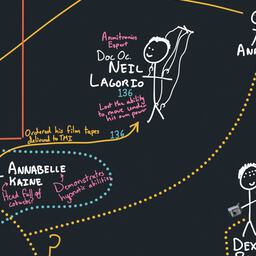 Animitronics
Expert
Doc Oc.
NEIL
LAGORIO
136
Lost the ability
to move under
his own power
Ordered his film tapes
delivered to TMI
136
ANNABELLE
KAINE
Head full of
Demonstrates
hypnotic abilities
?
DEX